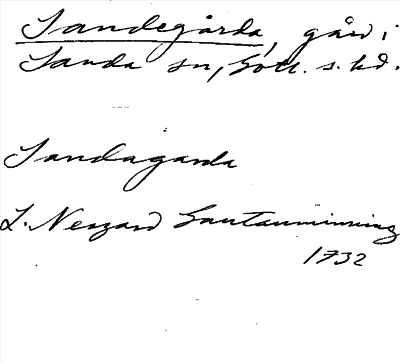 Sandegårda, gård i
Sanda sn, Gotl. s. hd.
Sandagarda
L. Nergard Gautauminning
1732